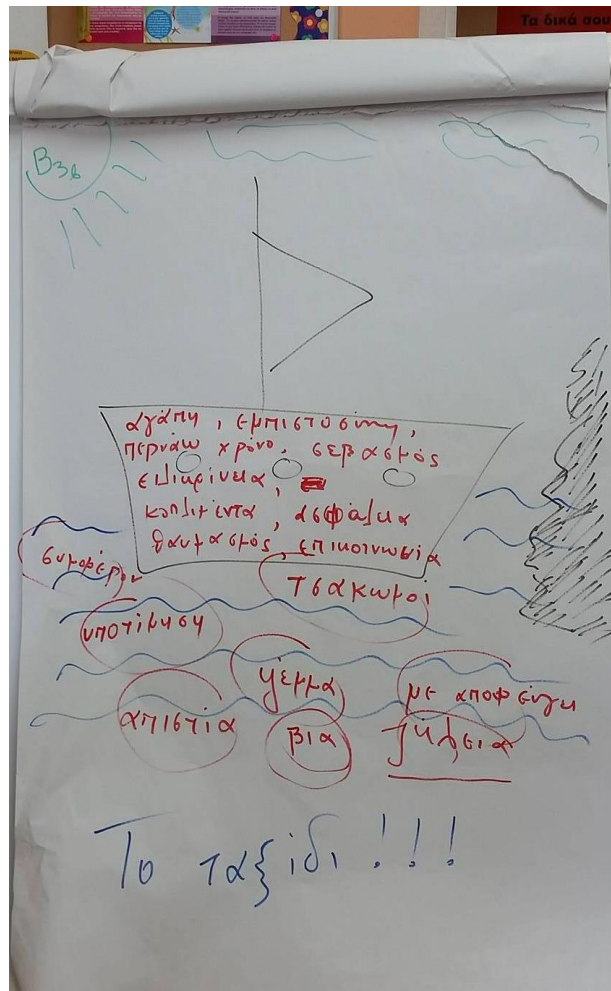 Τα δικά σου
Β36
αγάπη, εμπιστοσύνη,
περνάω χρόνο, σεβασμός
ειλικρίνεια,
κοπλιμέντα, ασφάλεια
θαυμασμός, επικοινωνία
συμφέρον
τσακωμοί
υποτίμηση
ψέμμα
με αποφεύγει
απιστία
βία
ζήλεια
Το ταξίδι!!!